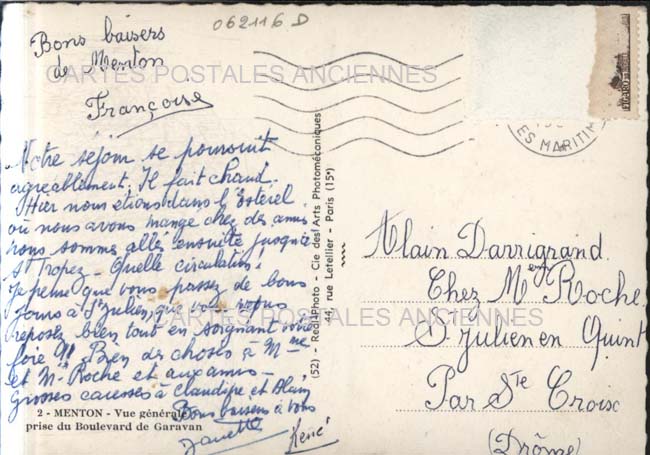 062116 D
Bons baisers
de Menton
Françoise
CARTES POSTALES ANCIENNES
Notre séjour se poursuit
agréablement. Il fait chaud.
Hier nous étions dans l'Estérel
où nous avons mangé chez des amis
nous sommes allés ensuite jusqu'à
St Tropez - Quelle circulation!
Je pense que vous passez de bons
jours à St Julien, que vous vous
reposez bien tout en soignant votre
foie Bien des choses à Mme
et Mr Roche et aux amis -
Grosses caresses à Claudine et Alain
Bons baisers à vous
Janette René
2 - MENTON - Vue générale
prise du Boulevard de Garavan
(52) - Redi-Photo - Cie des Arts Photomécaniques
44, rue Letellier - Paris (15e)
ES MARITIM
FIGARO
Alain Darrigrand
Chez Mr Roche
St Julien en Quint
CARTES POSTALES ANCIENNES
Par Ste Croix
(Drôme)